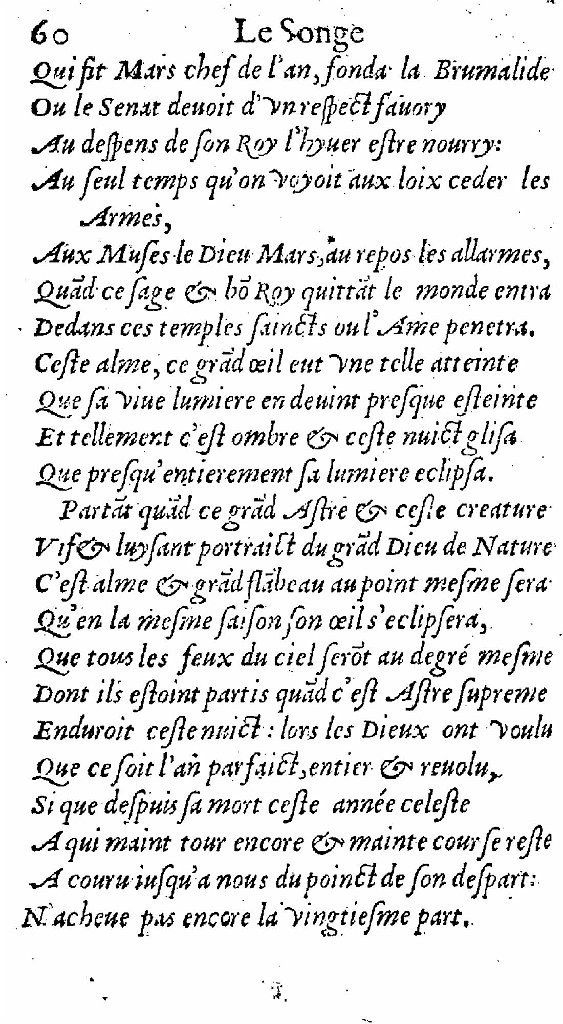 60 Le Songe
Qui fit Mars chef de l'an, fonda la Brumalide
Ou le Senat deuoit d'vn respect fauory
Au despens de son Roy l'hyuer estre nourry:
Au seul temps qu'on voyoit aux loix ceder les
Armes,
Aux Muses le Dieu Mars, au repos les allarmes,
Quād ce sage & bō Roy quittāt le monde entra
Dedans ces temples saincts ou l'Ame penetra.
Ceste alme, ce grād œil eut vne telle atteinte
Que sa viue lumiere en deuint presque esteinte
Et tellement c'est ombre & ceste nuict glisa
Que presqu'entierement sa lumiere eclipsa.
Partāt quād ce grād Astre & ceste creature
Vif & luysant portraict du grād Dieu de Nature
C'est alme & grād flābeau au point mesme sera
Qu'en la mesme saison son œil s'eclipsera,
Que tous les feux du ciel serōt au degré mesme
Dont ils estoint partis quād c'est Astre supreme
Enduroit ceste nuict: lors les Dieux ont voulu
Que ce soit l'an parfaict, entier & reuolu,
Si que despuis sa mort ceste année celeste
A qui maint tour encore & mainte course reste
A couru iusqu'a nous du poinct de son despart:
N'acheue pas encore la vingtiesme part.